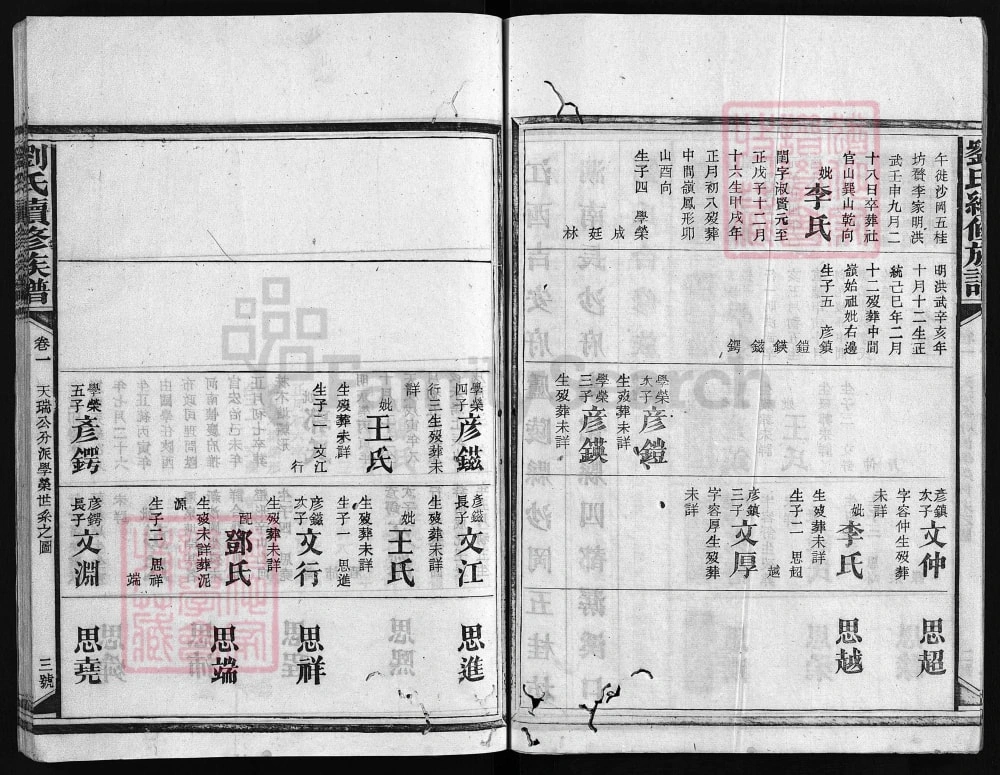 劉氏續修族譜
午徙沙岡五桂
坊贅李家明洪
武壬申九月二
十八日卒葬社
官山巽山乾向
妣李氏
閨字淑賢元至
正戊子十二月
十六生甲戌年
正月初八歿葬
中間嶺鳳形卯
山酉向
生子四 學榮
成
廷
林
明洪武辛亥年
十月十二生正
統己巳年二月
十二歿葬中間
嶺始祖妣右邊
生子五 彦鎮
鎧
鍈
鎡
鍔
學榮次子彦鎧
生歿葬未詳
學榮三子彦鍈
生歿葬未詳
彦鎮次子文仲
字容仲生歿葬
未詳
妣李氏
生歿葬未詳
生子二 思超
越
彦鎮三子文厚
字容厚生歿葬
未詳
思超
思越
學榮四子彦鎡
行三生歿葬未
詳
妣王氏
生歿葬未詳
生子二 文江
行
學榮五子彦鍔
彦鎡長子文江
生歿葬未詳
妣王氏
生歿葬未詳
生子一 思進
彦鎡次子文行
生歿葬未詳
配鄧氏
生歿未詳葬泥
源
生子二 思祥
端
彦鍔長子文淵
思進
思祥
思端
思堯
劉氏續修族譜
卷一
天瑞公分派學榮世系之圖
三號
FamilySearch